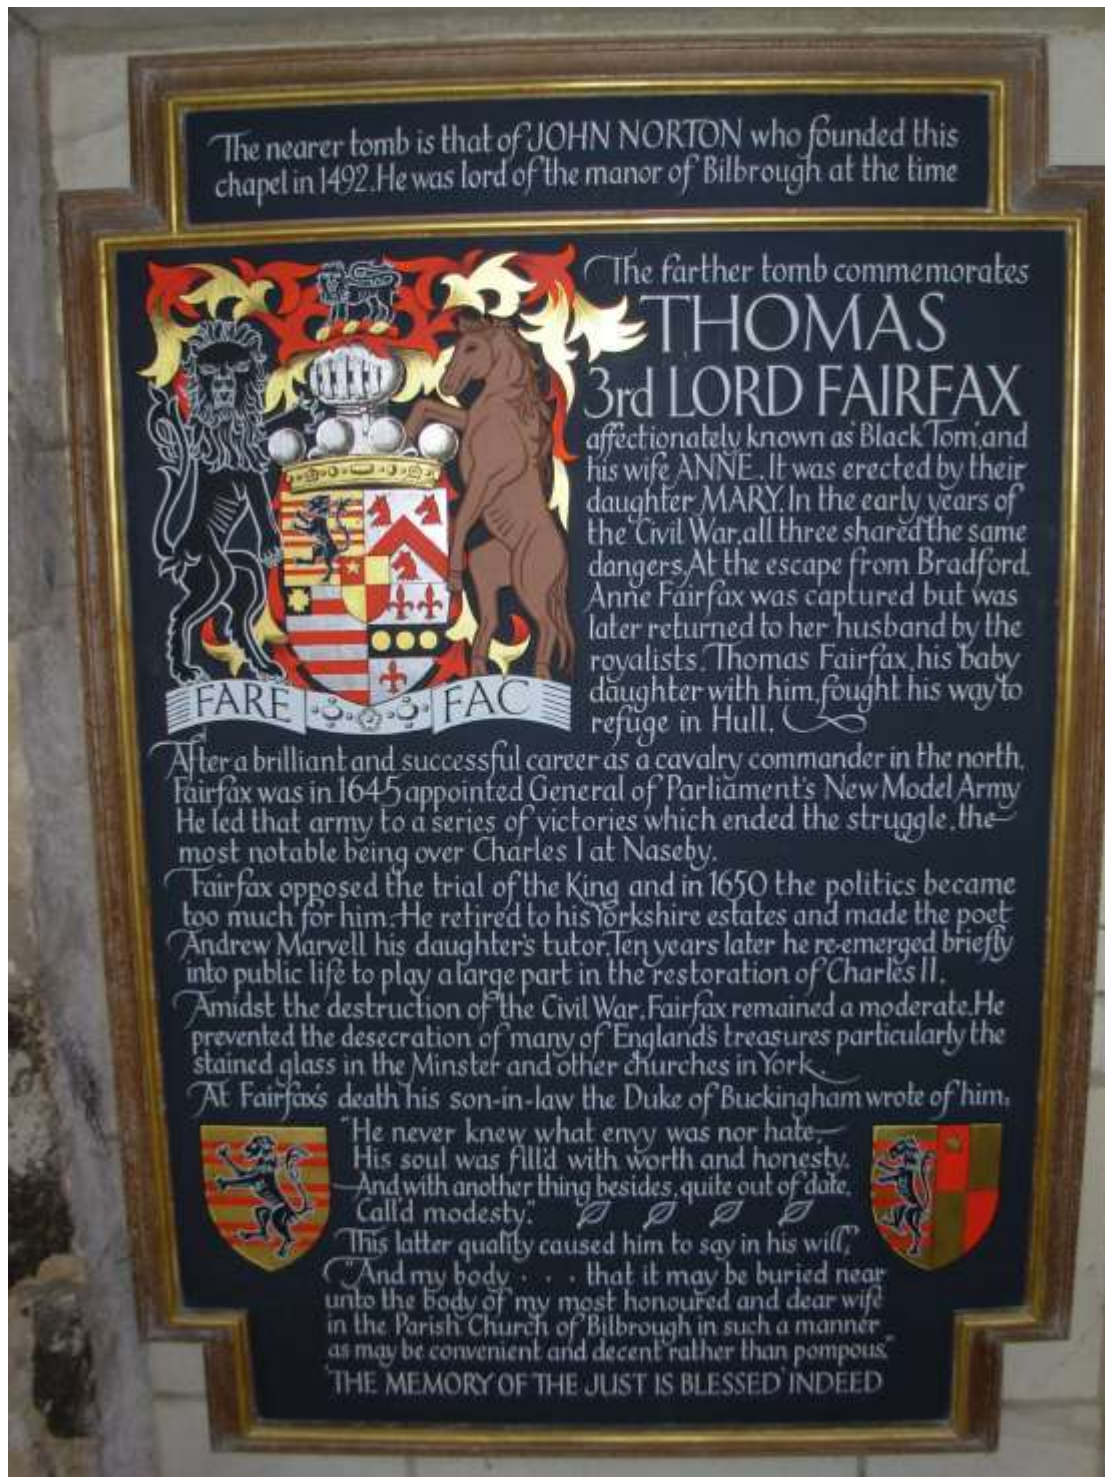 The nearer tomb is that of JOHN NORTON who founded this
chapel in 1492. He was lord of the manor of Bilbrough at the time
The farther tomb commemorates
THOMAS
3rd LORD FAIRFAX
affectionately known as 'Black Tom' and
his wife ANNE. It was erected by their
daughter MARY. In the early years of
the Civil War, all three shared the same
dangers. At the escape from Bradford,
Anne Fairfax was captured but was
later returned to her husband by the
royalists. Thomas Fairfax, his baby
daughter with him, fought his way to
refuge in Hull.
FARE FAC
After a brilliant and successful career as a cavalry commander in the north,
Fairfax was in 1645 appointed General of Parliament's New Model Army
He led that army to a series of victories which ended the struggle, the
most notable being over Charles I at Naseby.
Fairfax opposed the trial of the King and in 1650 the politics became
too much for him. He retired to his Yorkshire estates and made the poet
Andrew Marvell his daughter's tutor. Ten years later he re-emerged briefly
into public life to play a large part in the restoration of Charles II.
Amidst the destruction of the Civil War, Fairfax remained a moderate. He
prevented the desecration of many of England's treasures particularly the
stained glass in the Minster and other churches in York.
At Fairfax's death his son-in-law the Duke of Buckingham wrote of him:
"He never knew what envy was nor hate
His soul was fill'd with worth and honesty.
And with another thing besides, quite out of date,
Call'd modesty."
This latter quality caused him to say in his will,
"And my body . . . that it may be buried near
unto the body of my most honoured and dear wife
in the Parish Church of Bilbrough in such a manner
as may be convenient and decent rather than pompous."
'THE MEMORY OF THE JUST IS BLESSED' INDEED